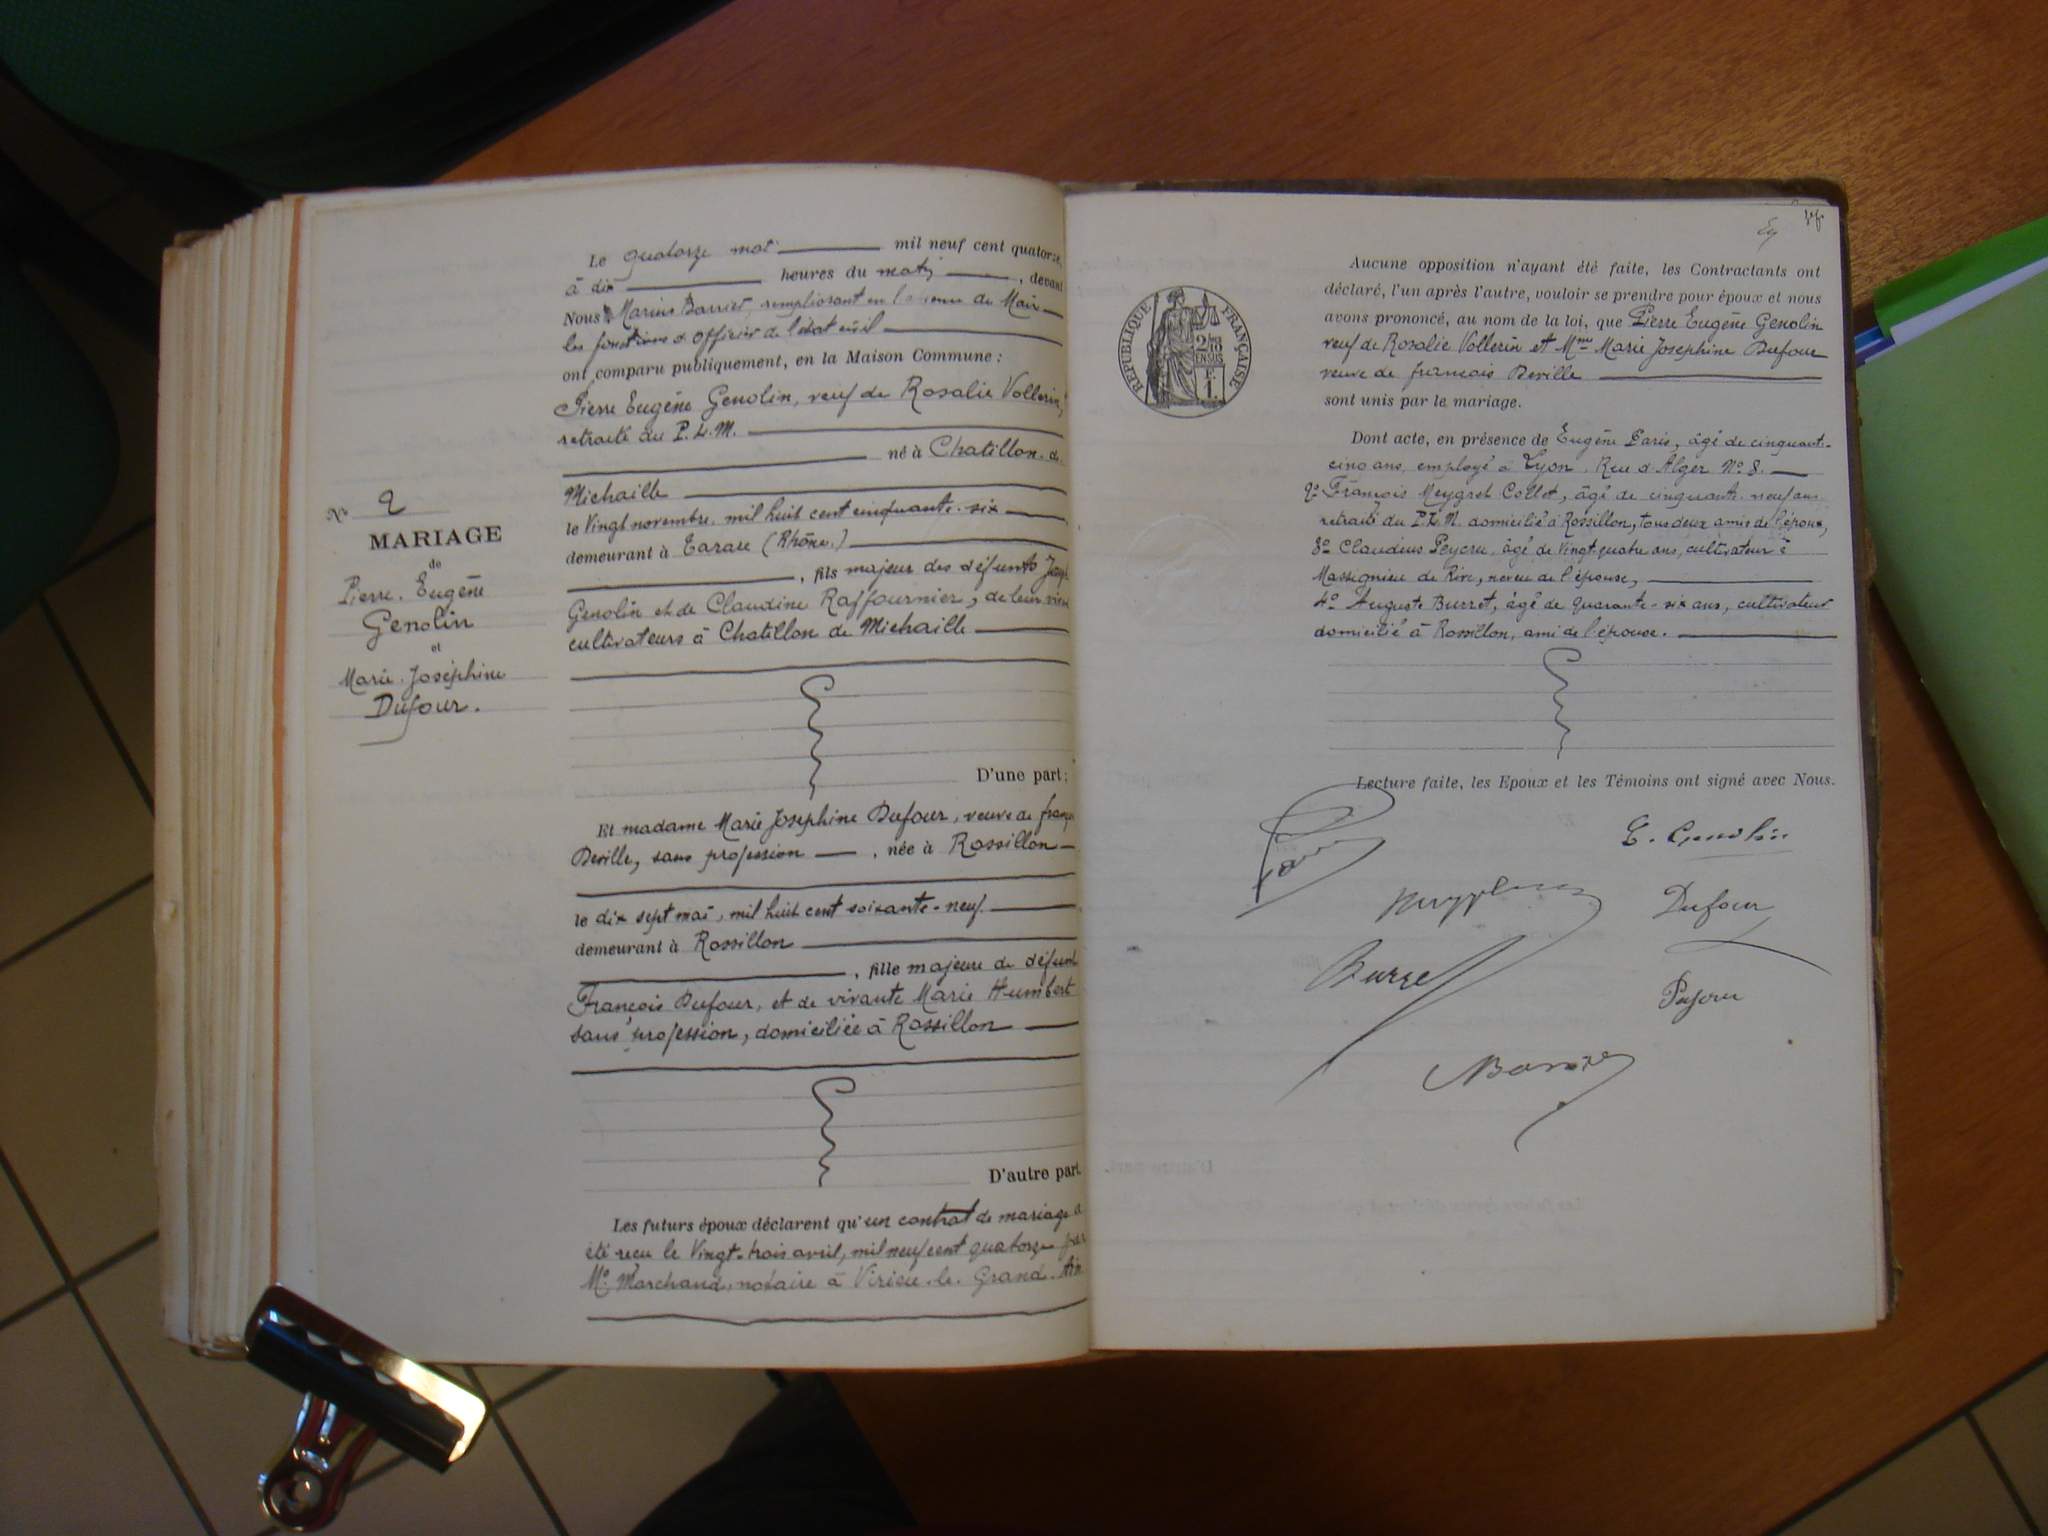 Nº 2
MARIAGE
de
Pierre. Eugène
Genolin
et
Marie. Joséphine
Dufour.
Le quatorze mai mil neuf cent quatorze,
à dix heures du matin, devant
Nous Marius Barrier, remplissant en l' de Maire
les fonctions d'officier de l'état civil
ont comparu publiquement, en la Maison Commune :
Pierre Eugène Genolin, veuf de Rosalie Vollerin,
retraité du P. L. M.
né à Chatillon. de.
Michaille
le Vingt novembre. mil huit cent cinquante. six
demeurant à Tarare (Rhône.)
, fils majeur des défunts Joseph
Genolin et de Claudine Raffournier, de leur vivant
cultivateurs à Chatillon de Michaille
D'une part ;
Et madame Marie Josephine Dufour, veuve de françois
Deville, sans profession, née à Rossillon
le dix sept mai, mil huit cent soixante. neuf.
demeurant à Rossillon
, fille majeure de défunt
François Dufour, et de vivante Marie Humbert
sans profession, domiciliée à Rossillon
D'autre part.
Les futurs époux déclarent qu'un contrat de mariage a
été reçu le Vingt-trois avril, mil neuf cent quatorze par
Me. Marchand, notaire à Virieu. le. Grand. Ain
RÉPUBLIQUE FRANÇAISE
2/10
EN SUS
1.
Aucune opposition n'ayant été faite, les Contractants ont
déclaré, l'un après l'autre, vouloir se prendre pour époux et nous
avons prononcé, au nom de la loi, que Pierre Eugène Genolin
veuf de Rosalie Vollerin et Mme Marie Josephine Dufour
veuve de françois Deville
sont unis par le mariage.
Dont acte, en présence de Eugène Paris, âgé de cinquante-
cinq ans, employé à Lyon. Rue d'Alger Nº 8.
2º François Meygret Collet, âgé de cinquante. neuf ans
retraité du P. L. M. domicilié à Rossillon, tous deux amis de l'époux,
3º Claudius Peycru, âgé de Vingt quatre ans, cultivateur à
Massignieu de Rive, neveu de l'épouse,
4º Auguste Burret, âgé de quarante-six ans, cultivateur
domicilié à Rossillon, ami de l'épouse.
Lecture faite, les Epoux et les Témoins ont signé avec Nous.
E. Genolin
Dufour
Burret
Peycru